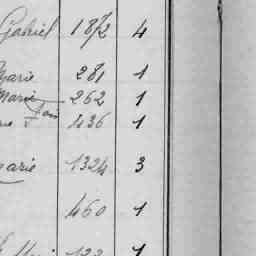 Gabriel 1872 4
Marie 281 1
Marie 262 1
436 1
Marie 1324 3
460 1
1